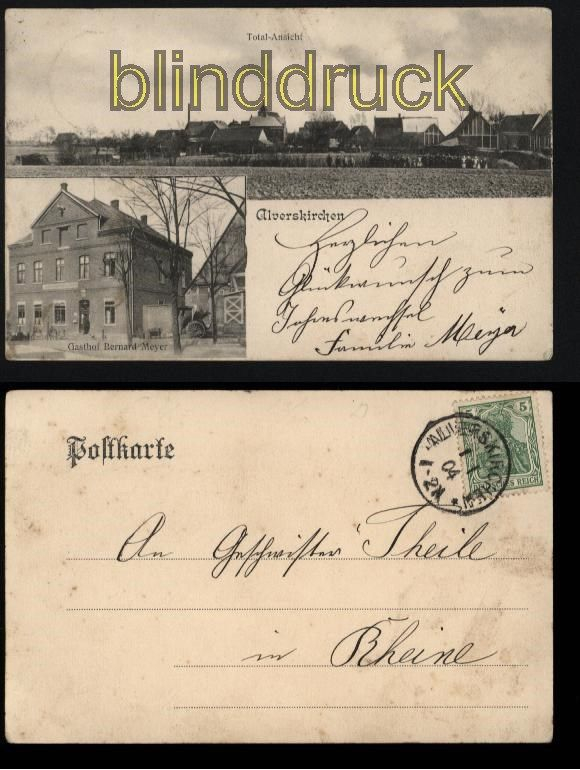 Total-Ansicht
blinddruck
Alverskirchen
Herzlichen
Glückwunsch zum
Jahreswechsel
Familie Meyer
Gasthof Bernard Meyer
Postkarte
5
ALVERSKIRCHEN
1 1
04
*
REICH
An Geschwister Theile
in Rheine